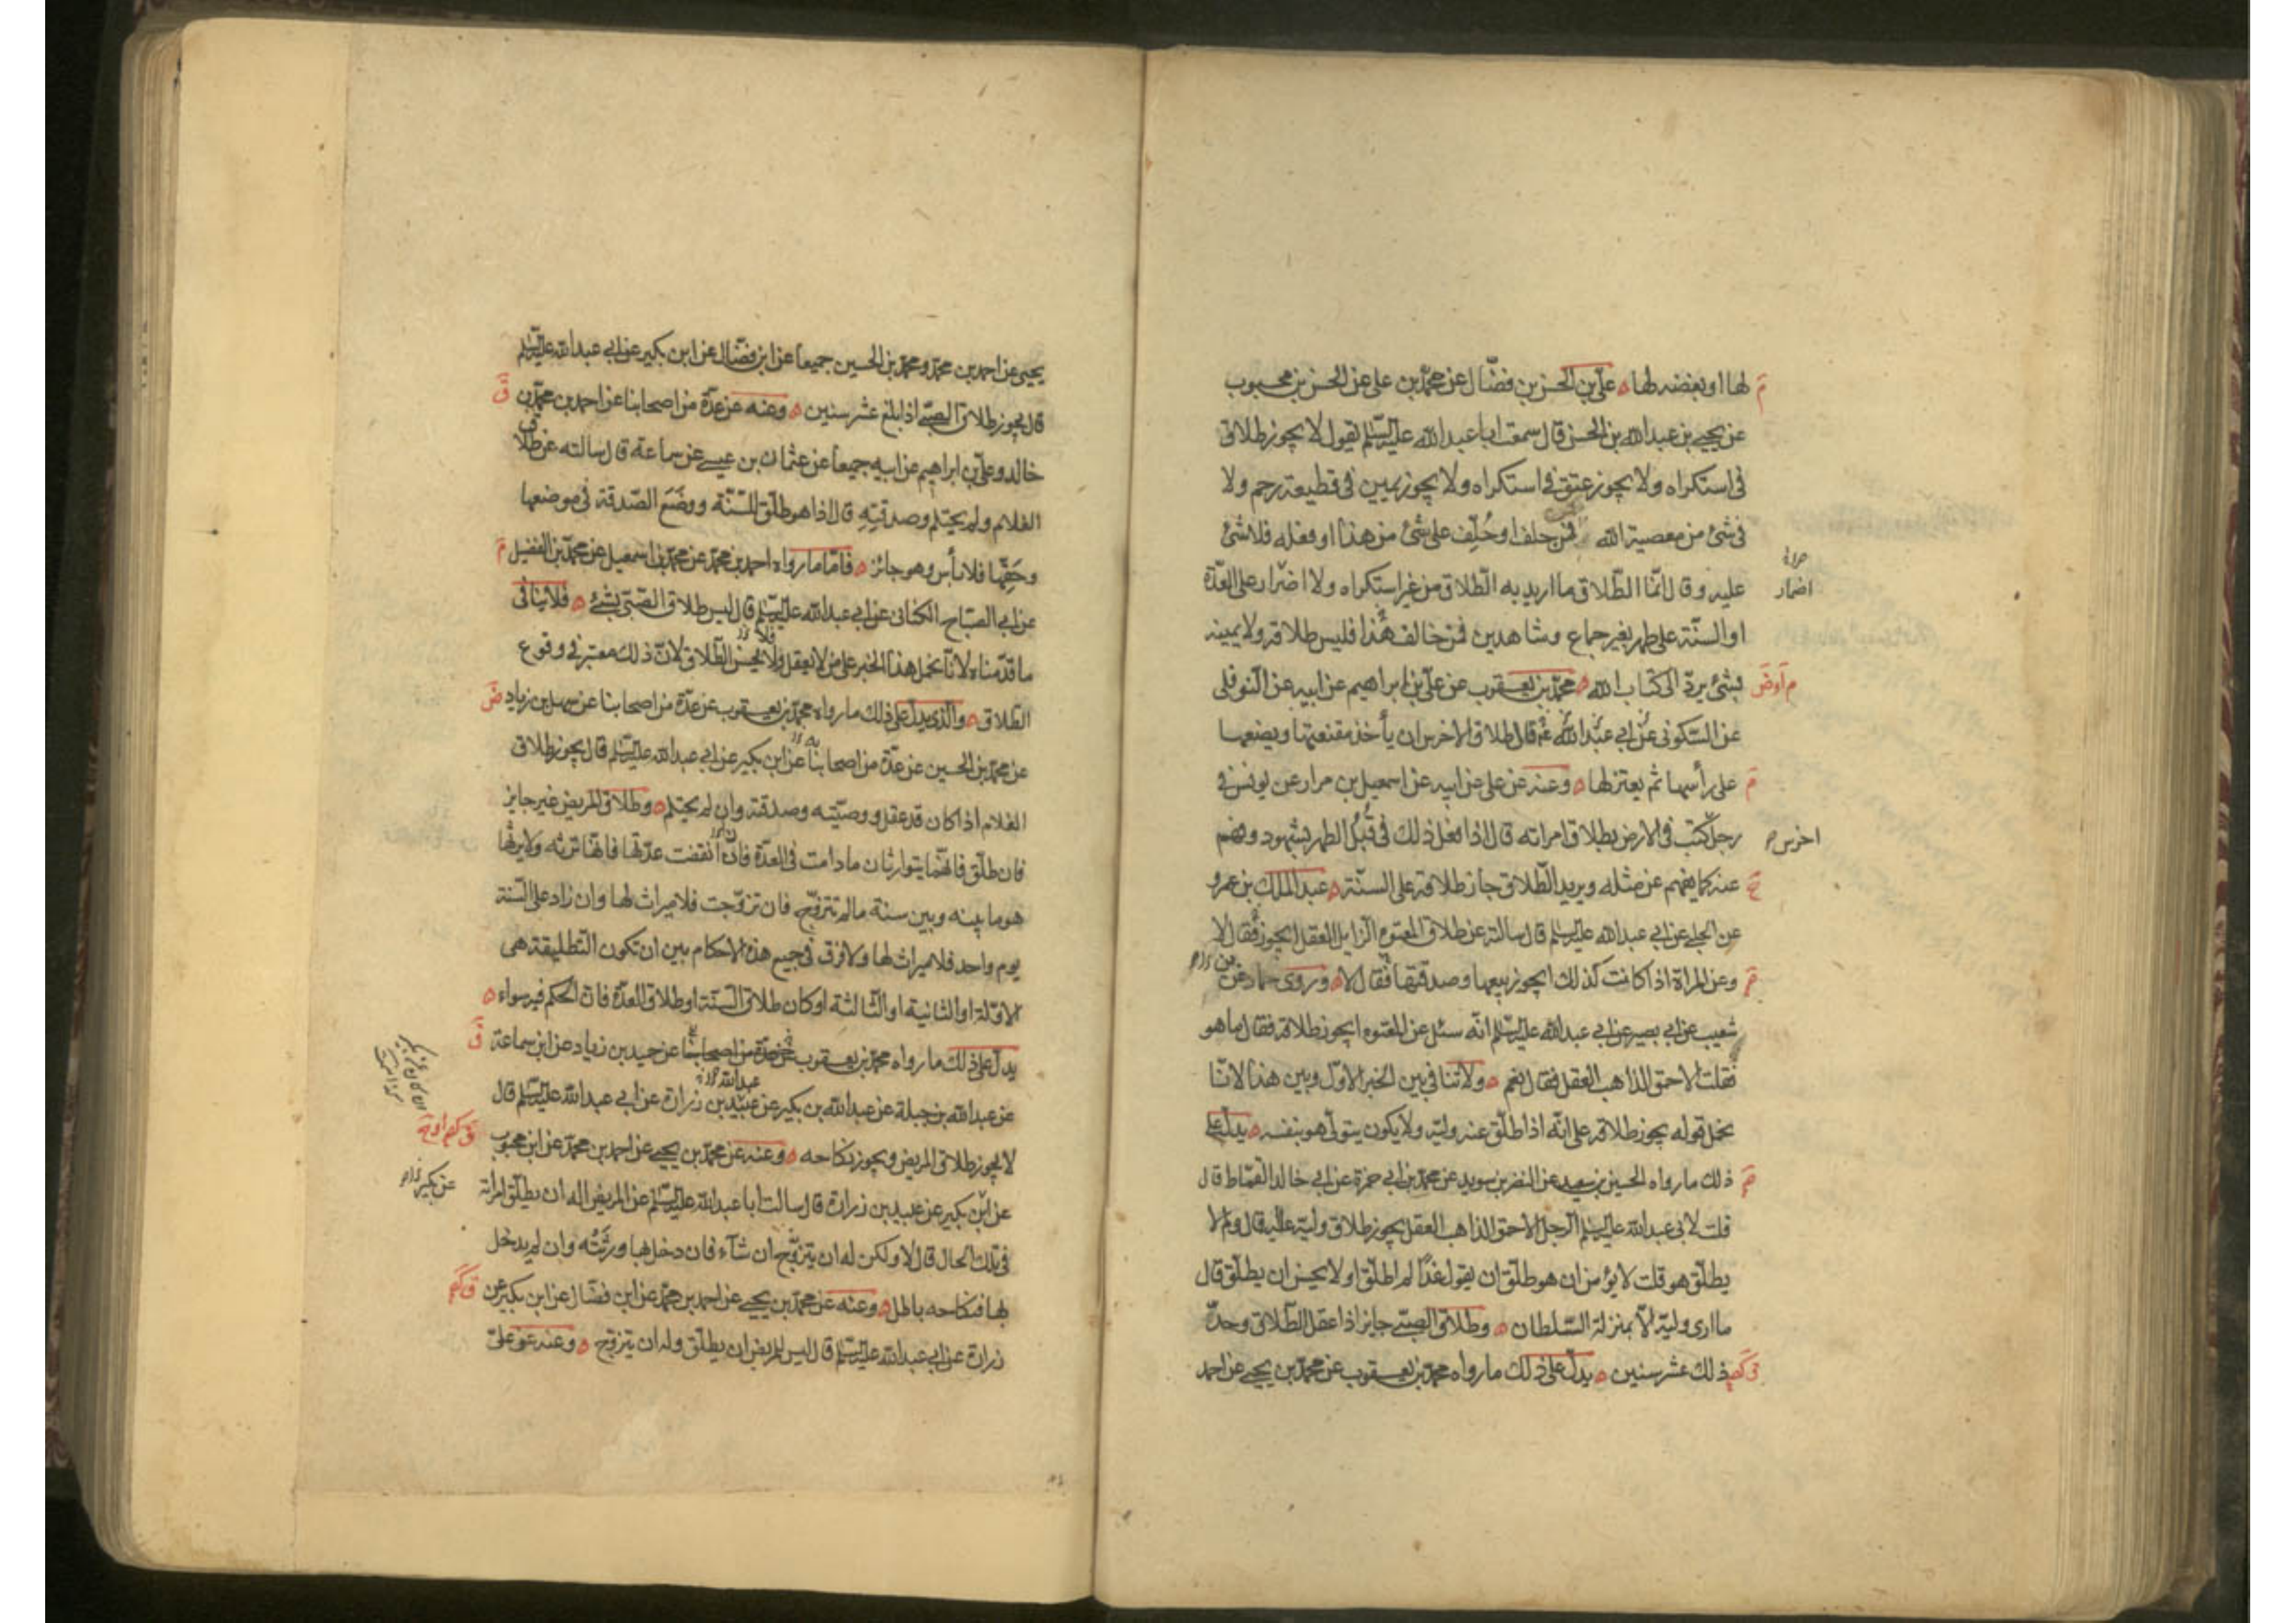 لها او بغضه لها ه علي بن الحسن بن فضال عن محمد بن علي عن الحسن بن محبوب
عن يحيى بن عبدالله بن الحسن قال سمعت ابا عبدالله عليه السلم يقول لا يجوز طلاق
في استكراه ولا يجوز عتق في استكراه ولا يجوز يمين في قطيعة رحم ولا
في شئ من معصية الله فمن حلف او حُلِّف على شئ من هذا او فعله فلا شئ
عليه وقال انّما الطّلاق ما اريد به الطّلاق من غير استكراه ولا اضرار على العدّة
اضمار
او السنّة على طهر بغير جماع وشاهدين فمن خالف هذا فليس طلاقه ولا يمينه
بشئ يردّ الى كتاب الله ه محمّد بن يعقوب عن عليّ بن ابراهيم عن ابيه عن النّوفلي
عن السّكوني عن ابي عبدالله قال طلاق الاخرس ان يأخذ مقنعتها ويضعها
على رأسها ثم يعتزلها ه وعنه عن علي عن ابيه عن اسمعيل بن مرار عن يونس في
رجل كتب في الارض بطلاق امراته قال اذا فعل ذلك في قُبُل الطهر بشهود وفهم
اخرس
عنه كما يفهم عن مثله ويريد الطّلاق جاز طلاقه على السنّة ه عبد الملك بن عمرو
عن الحلبي عن ابي عبدالله عليه السلم قال سالته عن طلاق المعتوه الزايل العقل ايجوز فقال لا
وعن المراة اذا كانت كذلك ايجوز بيعها وصدقتها فقال لا ه وروى حماد عن
شعيب عن ابي بصير عن ابي عبدالله عليه السلم انّه سئل عن المعتوه ايجوز طلاقه فقال ما هو
فقلت الاحمق الذاهب العقل فقال نعم ه ولا تنافي بين الخبر الاوّل وبين هذا لانّا
نحمل قوله يجوز طلاقه على انّه اذا طلّق عنه وليّه ولا يكون يتولّى هو بنفسه ه يدلّ على
ذلك ما رواه الحسين بن سعيد عن النضر بن سويد عن محمّد بن ابي حمزة عن ابي خالد القمّاط قال
قلت لابي عبدالله عليه السلم الرجل الاحمق الذاهب العقل يجوز طلاق وليّه عليه قال ولم لا
يطلّق هو قلت لا يؤمن ان هو طلّق ان يقول غدًا لم اطلّق او لا يحسن ان يطلّق قال
ما ارى وليّه الاّ بمنزلة السّلطان ه وطلاق الصبيّ جايز اذا عقل الطّلاق وحدّ
ذلك عشر سنين ه يدلّ على ذلك ما رواه محمّد بن يعقوب عن محمّد بن يحيى عن احمد
يحيى عن احمد بن محمّد ومحمّد بن الحسين جميعا عن ابن فضّال عن ابن بكير عن ابي عبدالله عليه السلم
قال يجوز طلاق الصبيّ اذا بلغ عشر سنين ه وعنه عن عدّة من اصحابنا عن احمد بن محمّد بن
خالد وعليّ بن ابراهيم عن ابيه جميعا عن عثمان بن عيسى عن سماعة قال سالته عن طلاق
الغلام ولم يحتلم وصدقته قال اذا هو طلّق للسّنّة ووضَعَ الصّدقة في موضعها
وحَقّها فلا بأس وهو جائز ه فامّا ما رواه احمد بن محمّد عن محمّد بن اسمعيل عن محمّد بن الفضيل
عن ابي الصبّاح الكناني عن ابي عبدالله عليه السلم قال ليس طلاق الصّبيّ بشئ ه فلا ينافي
ما قدّمناه لانّا نحمل هذا الخبر على من لا يعقل ولا يحسن الطّلاق لانّ ذلك معتبر في وقوع
الطّلاق ه والّذي يدلّ على ذلك ما رواه محمّد بن يعقوب عن عدّة من اصحابنا عن سهل بن زياد
عن محمّد بن الحسين عن عدّة من اصحابنا عن ابن بكير عن ابي عبدالله عليه السلم قال يجوز طلاق
الغلام اذا كان قد عقل ووصيّته وصدقته وان لم يحتلم ه وطلاق المريض غير جايز
فان طلّق فانّهما يتوارثان ما دامت في العدّة فان انقضت عدّتها فانّها ترثه ولا يرثها
هو ما بينه وبين سنة ما لم تتزوّج فان تزوّجت فلا ميراث لها وان زاد على السّنة
يوم واحد فلا ميراث لها ولا فرق في جميع هذه الاحكام بين ان تكون التطليقة هي
الاوّلة او الثانية او الثّالثة او كان طلاق السّنة او طلاق العدّة فان الحكم فيه سواء ه
يدلّ على ذلك ما رواه محمّد بن يعقوب عن عدّة من اصحابنا عن حميد بن زياد عن ابن سماعة
عن عبدالله بن جبلة عن عبدالله بن بكير عن عبيد بن زرارة عن ابي عبدالله عليه السلم قال
لا يجوز طلاق المريض ويجوز نكاحه ه وعنه عن محمّد بن يحيى عن احمد بن محمّد عن ابن محبوب
عن ابن بكير عن عبيد بن زرارة قال سالت ابا عبدالله عليه السلم عن المريض اله ان يطلّق امراته
عن بكير
في تلك الحال قال لا ولكن له ان يتزوّج ان شآء فان دخل بها ورثَتْه وان لم يدخل
بها فنكاحه باطل ه وعنه عن محمّد بن يحيى عن احمد بن محمّد عن ابن فضّال عن ابن بكير عن
زرارة عن ابي عبدالله عليه السلم قال ليس للمريض ان يطلّق وله ان يتزوّج ه وعنه عن عليّ